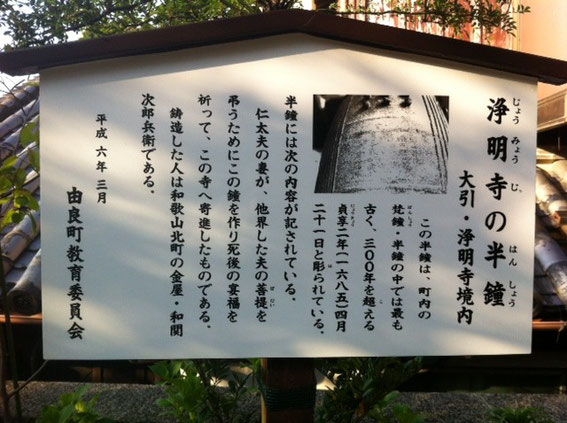 浄明寺の半鐘
じょうみょうじ はんしょう
大引・浄明寺境内
この半鐘は、町内の
梵鐘・半鐘の中では最も
古く、三〇〇年を超える
貞享二年(一六八五)四月
二十一日と彫られている。
半鐘には次の内容が記されている。
仁太夫の妻が、他界した夫の菩提を
弔うためにこの鐘を作り死後の宴福を
祈って、この寺へ寄進したものである。
鋳造した人は和歌山北町の金屋・和関
次郎兵衛である。
平成六年三月
由良町教育委員会